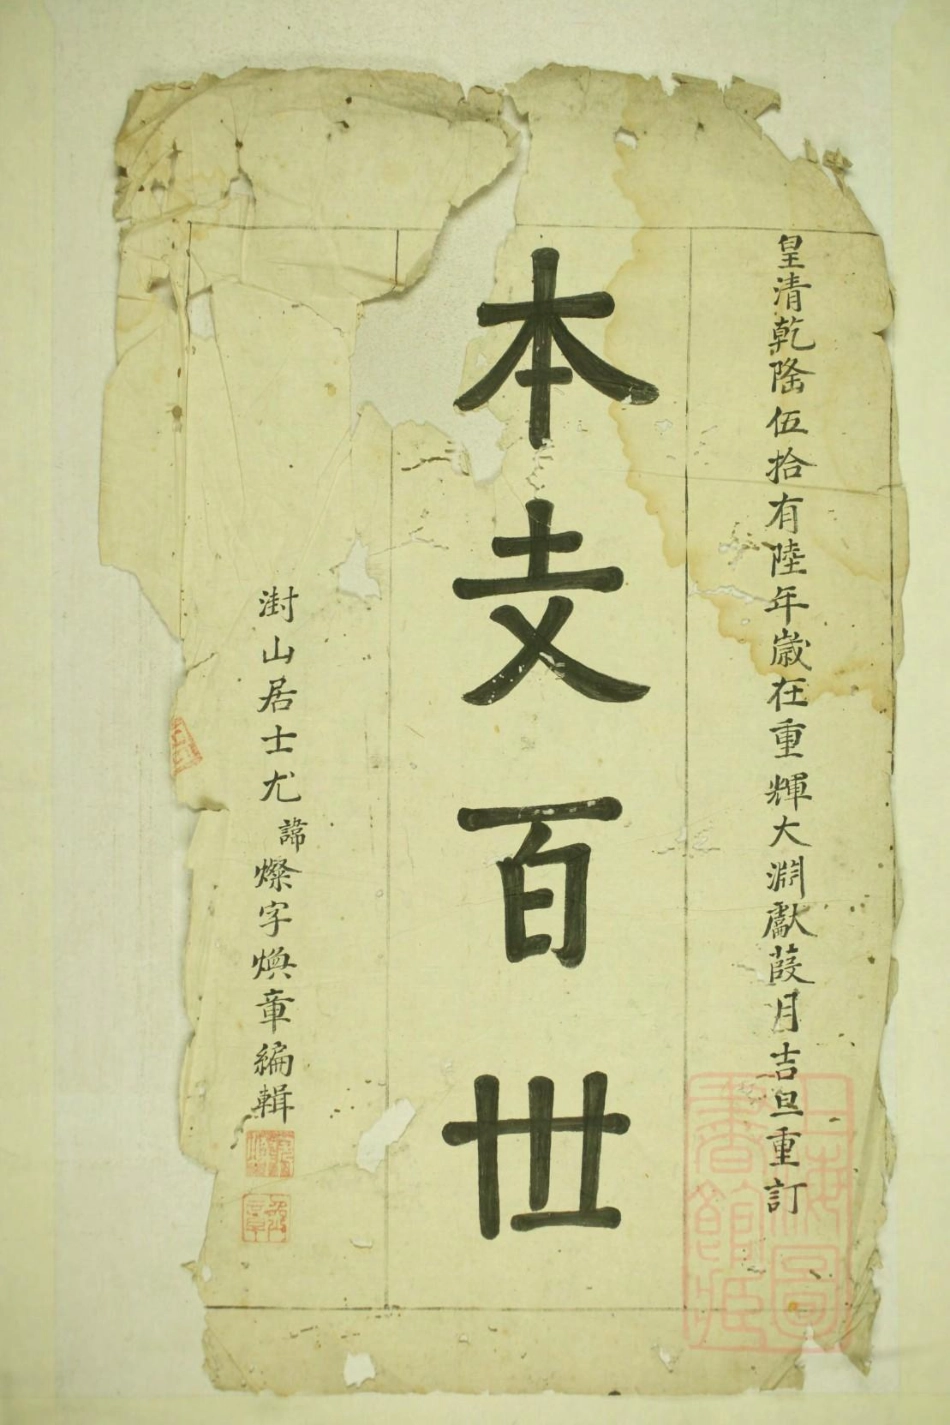 皇清乾隆伍拾有陸年歲在重輝大淵獻葭月吉旦重訂
本支百世
澍山居士尤諱燦字煥章編輯
上海圖書館藏